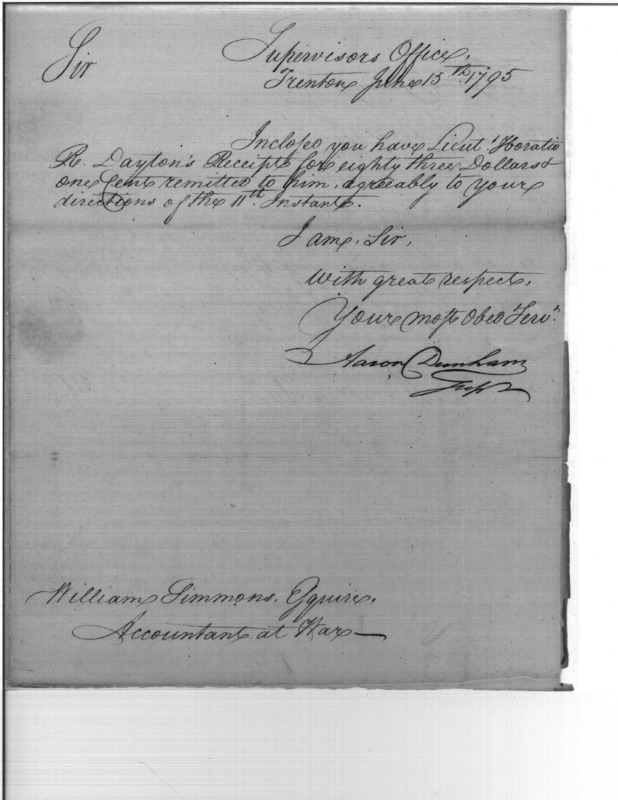 Supervisors Office,
Sir
Trenton June 15th 1795
Inclosed you have Lieut Horatio
R. Dayton's Receipt for eighty three Dollars &
one Cent remitted to him, agreeably to your
directions of the 11th Instant.
I am, Sir,
With great respect,
Your most Obed Servt
Aaron Dunham
Supr
William Simmons, Esquire,
Accountant at War